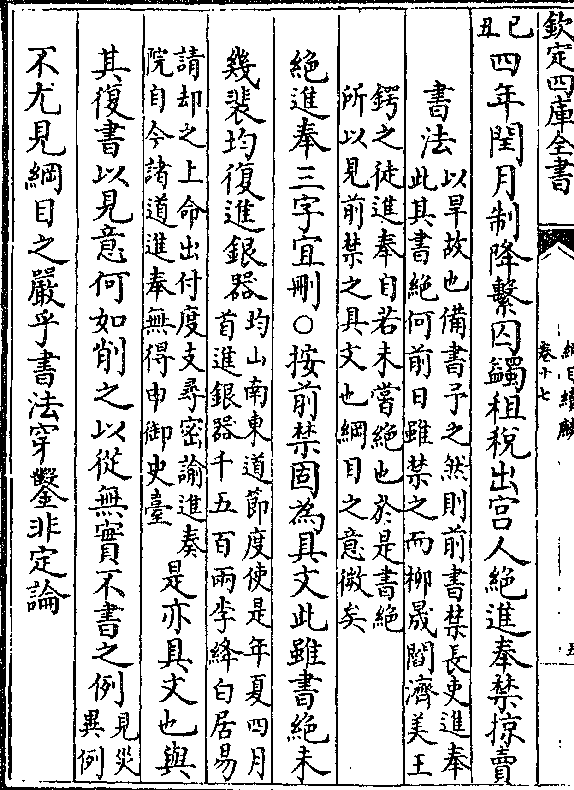 欽定四庫全書
綱目續麟
卷十七
己丑四年閏月制降繫囚蠲租稅出宫人絶進奉禁掠賣
書法
以旱故也備書予之然則前書禁長吏進奉
此其書絶何前日雖禁之而柳晟閻濟美王
鍔之徒進奉自若未嘗絶也於是書絶
所以見前禁之具文也綱目之意微矣
絶進奉三字宜刪○按前禁固為具文此雖書絶未
幾裴均復進銀器
均山南東道節度使是年夏四月
首進銀器千五百兩李絳白居易
請却之上命出付度支尋密諭進奏
院自今諸道進奉無得申御史臺
是亦具文也與
其復書以見意何如削之以從無實不書之例
見災
異例
不尤見綱目之嚴乎書法穿鑿非定論